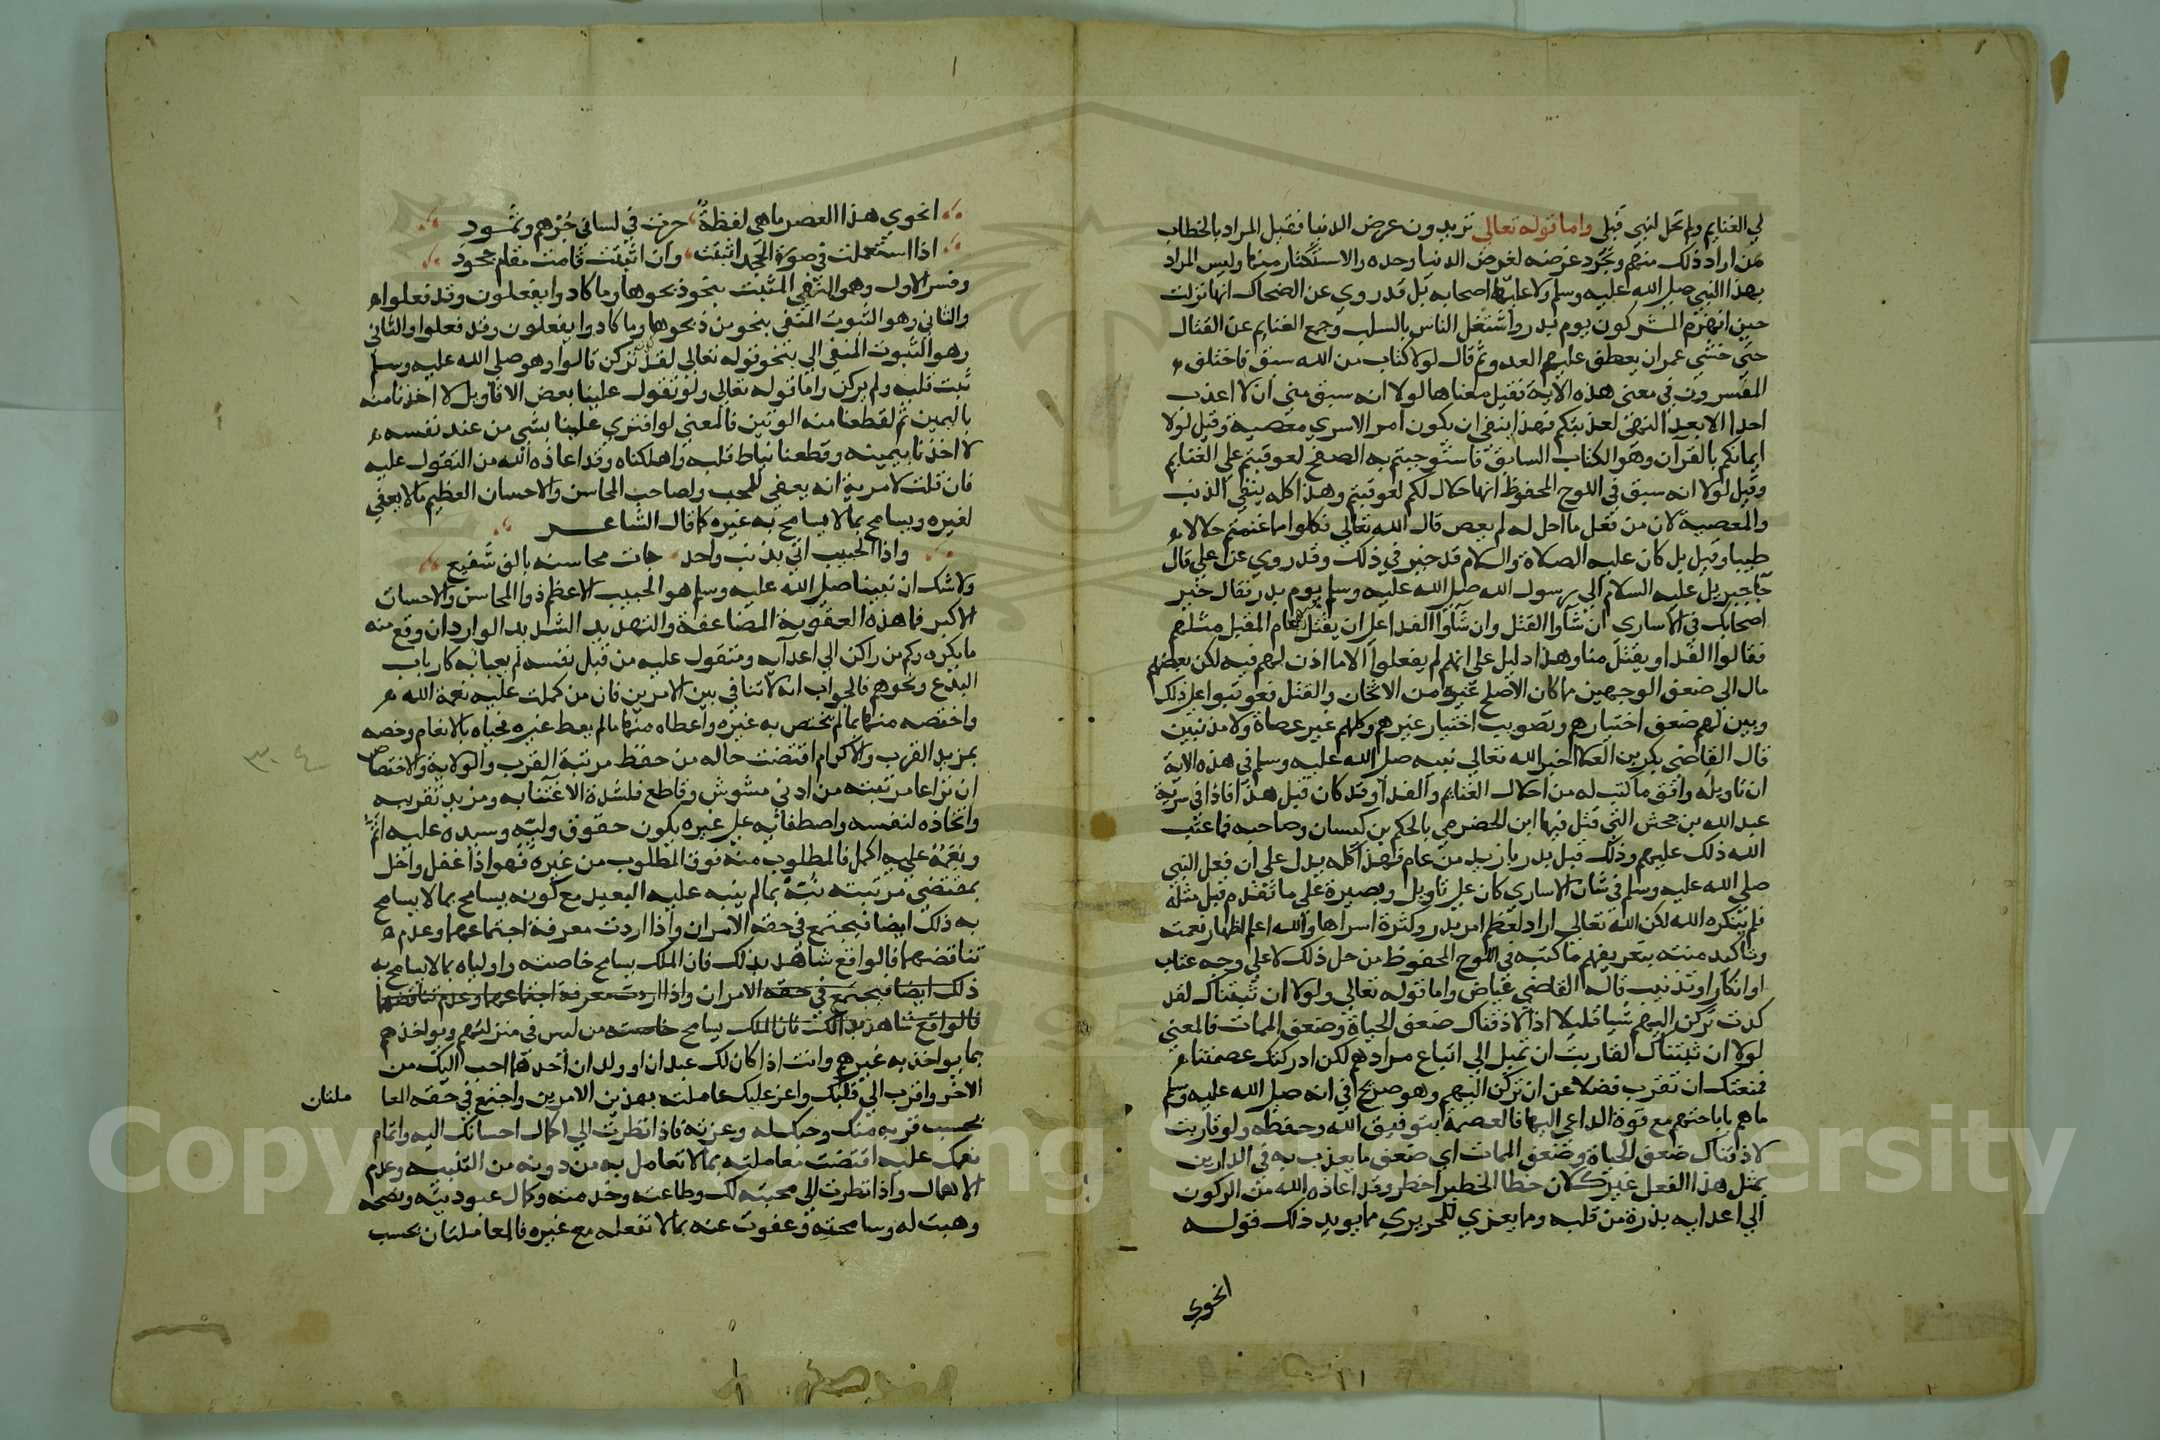 لي الغنايم ولم تحل لنبي قبلي واما قوله تعالي تريدون عرض الدنيا فقيل المراد بالخطاب
من اراد ذلك منهم وتجرد غرضه لغرض الدنيا وحده والاستكثار منها وليس المراد
بهذا النبي صلي الله عليه وسلم ولا علية اصحابه بل قد روي عن الضحاك انها نزلت
حين انهزم المشركون يوم بدر واشتغل الناس بالسلب وجمع الغنايم عن القتال
حتي خشي عمر ان يعطف عليهم العدو ثم قال لولا كتاب من الله سبق فاختلف
المفسرون في معني هذه الاية فقيل معناها لولا انه سبق مني ان لا اعذب
احدا الا بعد النهي لعذبتكم فهذا ينفي ان يكون امر الاسري معصية وقيل لولا
ايمانكم بالقرآن وهو الكتاب السابق فاستوجبتم به الصفح لعوقبتم علي الغنايم
وقيل لولا انه سبق في اللوح المحفوظ انها حلال لكم لعوقبتم وهذا كله ينفي الذنب
والمعصية لان من فعل ما احل له لم يعص قال الله تعالي فكلوا مما غنمتم حلالا
طيبا وقيل بل كان عليه الصلاة والسلام قد خير في ذلك وقد روي عن علي قال
جاجبريل عليه السلام الي رسول الله صلي الله عليه وسلم يوم بدر فقال خير
اصحابك في الاساري ان شاوا القتل وان شاوا الفدا علي ان يقتل منهم عام المقبل مثلهم
فقالوا الفدا ويقتل منا وهذا دليل علي انهم لم يفعلوا الا ما اذن لهم فيه لكن بعضهم
مال الي ضعف الوجهين مما كان الاصلح غيره من الاثخان والقتل فعوتبوا علي ذلك
وبين لهم ضعف اختيارهم وتصويب اختيار غيرهم وكلهم غير عصاة ولا مذنبين
قال القاضي بكر بن العلا اخبر الله تعالي نبيه صلي الله عليه وسلم في هذه الاية
ان تاويله وافق ما كتب له من احلال الغنايم والفدا وقد كان قبل هذا فادا في سرية
عبد الله بن جحش التي قتل فيها ابن الحضرمي بالحكم بن كيسان وصاحبه فما عتب
الله ذلك عليهم وذلك قبل بدر بازيد من عام فهذا كله يدل علي ان فعل النبي
صلي الله عليه وسلم في شان الاساري كان علي تاويل وبصيرة علي ما تقدم قبل مثله
فلم ينكره الله لكن الله تعالي اراد لعظم امر بدر وكثرة اسراها والله اعلم اظهار نعمته
وتاكيد منته بتعريفهم ما كتبه في اللوح المحفوظ من حل ذلك لا علي وجه عتاب
او انكار او تذنيب قاله القاضي عياض واما قوله تعالي ولولا ان ثبتناك لقد
كدت تركن اليهم شيا قليلا اذا لاذقناك ضعف الحياة وضعف الممات فالمعني
لولا ان ثبتناك لقاربت ان تميل الي اتباع مرادهم لكن ادركتك عصمتنا
فمنعتك ان تقرب فضلا عن ان تركن اليهم وهو صريح في انه صلي الله عليه وسلم
ما هم باباحتهم مع قوة الداعي اليها فالعصمة بتوفيق الله وحفظه ولو قاربت
لاذقناك ضعف الحياة وضعف الممات اي ضعف ما يعذب به في الدارين
بمثل هذا الفعل غيرك لان خطا الخطير اخطر وقد اعاذه الله من الركون
الي اعدايه بذرة من قلبه ومما يعزي للحريري مما يويد ذلك قوله
انحوي
انحوي هذا العصر ما هي لفظة جرت في لساني جرهم وثمود
اذا استعملت في صورة الجحد اثبتت وان اثبتت قامت مقام جحود
وفسر الاول وهو النفي المثبت بنحو فذبحوها وما كادوا يفعلون وقد فعلوا
والثاني وهو الثبوت المنفي بنحو من ذبحوها وما كادوا يفعلون وقد فعلوا والثاني
وهو الثبوت المنفي الي بنحو قوله تعالي لقد كدت تركن قالوا وهو صلي الله عليه وسلم
ثبت قلبه ولم يركن واما قوله تعالي ولو تقول علينا بعض الاقاويل لاخذنا منه
باليمين ثم لقطعنا منه الوتين فالمعني لو افتري علينا بشي من عند نفسه
لاخذنا بيمينه وقطعنا نياط قلبه واهلكناه وقد اعاذه الله من التقول عليه
فان قلت لا مرية انه يعفي للمحب ولصاحب المحاسن والاحسان العظيم ما لا يعفي
لغيره ويسامح بما لا يسامح به غيره كما قال الشاعر
واذا الحبيب اتي بذنب واحد جات محاسنه بالف شفيع
ولا شك ان نبينا صلي الله عليه وسلم هو الحبيب الاعظم ذو المحاسن والاحسان
الاكبر فما هذه العقوبة المضاعفة والتهديد الشديد الوارد ان وقع منه
ما يكره وكم من راكن الي اعدايه ومتقول عليه من قبل نفسه لم يعبا به كارباب
البدع ونحوهم فالجواب انه لا تنافي بين الامرين فان من كملت عليه نعمة الله
واختصه منها بما لم يختص به غيره واعطاه منها ما لم يعط غيره فحباه بالانعام وخصه
بمزيد القرب والاكرام اقتضت حاله من حفظ مرتبة القرب والولاية والاختصاص
ان تراعا مرتبته من ادني مشوش وقاطع فلشدة الاعتنا به ومزيد تقريبه
واتخاذه لنفسه واصطفايه علي غيره يكون حقوق وليه وسيده عليه اتم
ونعمه عليه اكمل فالمطلوب منه فوق المطلوب من غيره فهو اذا غفل واخل
بمقتضي مرتبته نبه بما لم ينبه عليه البعيد مع كونه يسامح بما لا يسامح
به ذلك ايضا فيجتمع في حقه الامران واذا اردت معرفة اجتماعهما وعدم
تناقضهما فالواقع شاهد بذلك فان الملك يسامح خاصته واولياه بما لا يسامح به
ذلك ايضا فيجتمع في حقه الامران واذا اردت معرفة اجتماعهما وعدم تناقضهما
فالواقع شاهد بذلك فان الملك يسامح خاصته من ليس في منزلتهم ويواخذهم
بما يواخذ به غيرهم وانت اذا كان لك عبدان او ولدان احدهما احب اليك من
الاخر واقرب الي قلبك واعز عليك عاملته بهذين الامرين واجتمع في حقه المعا
ملتان
بحسب قربه منك وحبك له وعزته فاذا نظرت الي اكمال احسانك اليه واتمام
نعمك عليه اقتضت معاملته بما لا تعامل به من دونه من التنبيه وعدم
الاهمال واذا نظرت الي محبته لك وطاعته وخدمته وكمال عبوديته ونصحه
وهبت له وسامحته وعفوت عنه بما لا تفعله مع غيره فالمعاملتان بحسب
٣٠٤